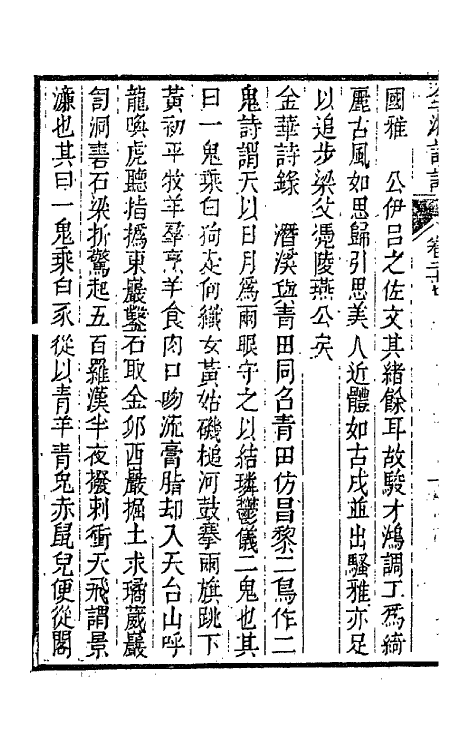 國雅　公伊呂之佐文其緒餘耳故駿才鴻調工爲綺
麗古風如思歸引思美人近體如古戍並出騷雅亦足
以追步梁父憑陵燕公矣
金華詩錄　潛溪與青田同名青田仿昌黎二鳥作二
鬼詩謂天以日月爲兩眼守之以結璘鬱儀二鬼也其
曰一鬼乘白狗走向織女黃姑磯槌河鼓搴兩旗跳下
黃初平牧羊羣烹羊食肉口吻流膏脂却入天台山呼
龍喚虎聽指撝東巖鑿石取金卯西巖掘土求瓀葳巖
訇洞砉石梁折驚起五百羅漢半夜撥剌衝天飛謂景
濂也其曰一鬼乘白豕從以青羊青兔赤鼠兒便從閣